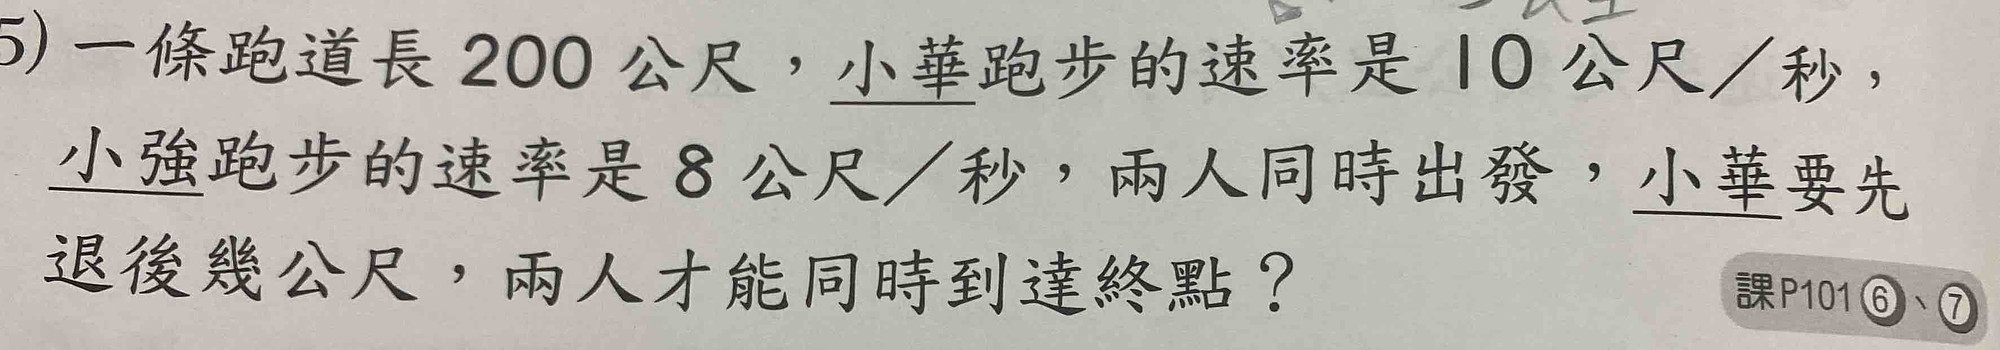 5) 一條跑道長 200 公尺，小華跑步的速率是 10 公尺／秒，
小強跑步的速率是 8 公尺／秒，兩人同時出發，小華要先
退後幾公尺，兩人才能同時到達終點？
課P101⑥、⑦